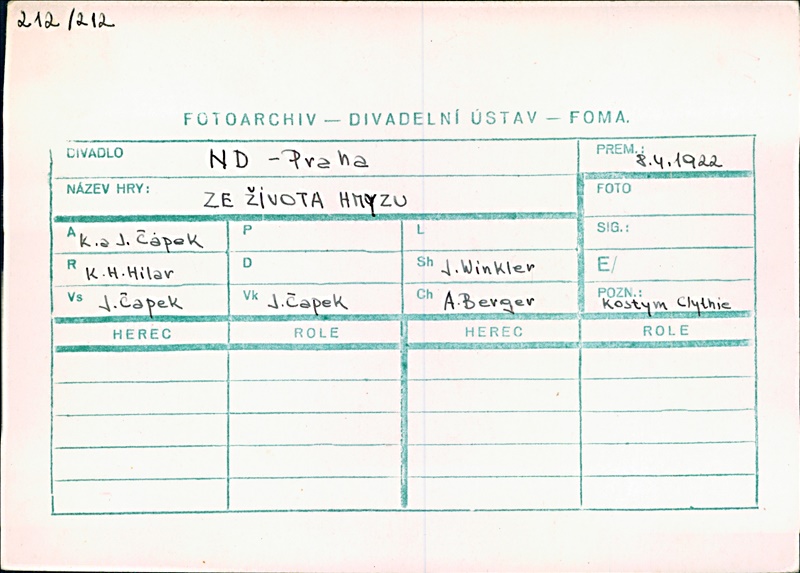 212/212
FOTOARCHIV — DIVADELNÍ ÚSTAV — FOMA.
DIVADLO ND - Praha PREM.: 8.4.1922
NÁZEV HRY: ZE ŽIVOTA HMYZU FOTO
A K. a J. Čápek P L SIG.:
R K. H. Hilar D Sh J. Winkler E/
Vs J. Čapek Vk J. Čapek Ch A. Berger POZN.: Kostym Clythie
HEREC ROLE HEREC ROLE